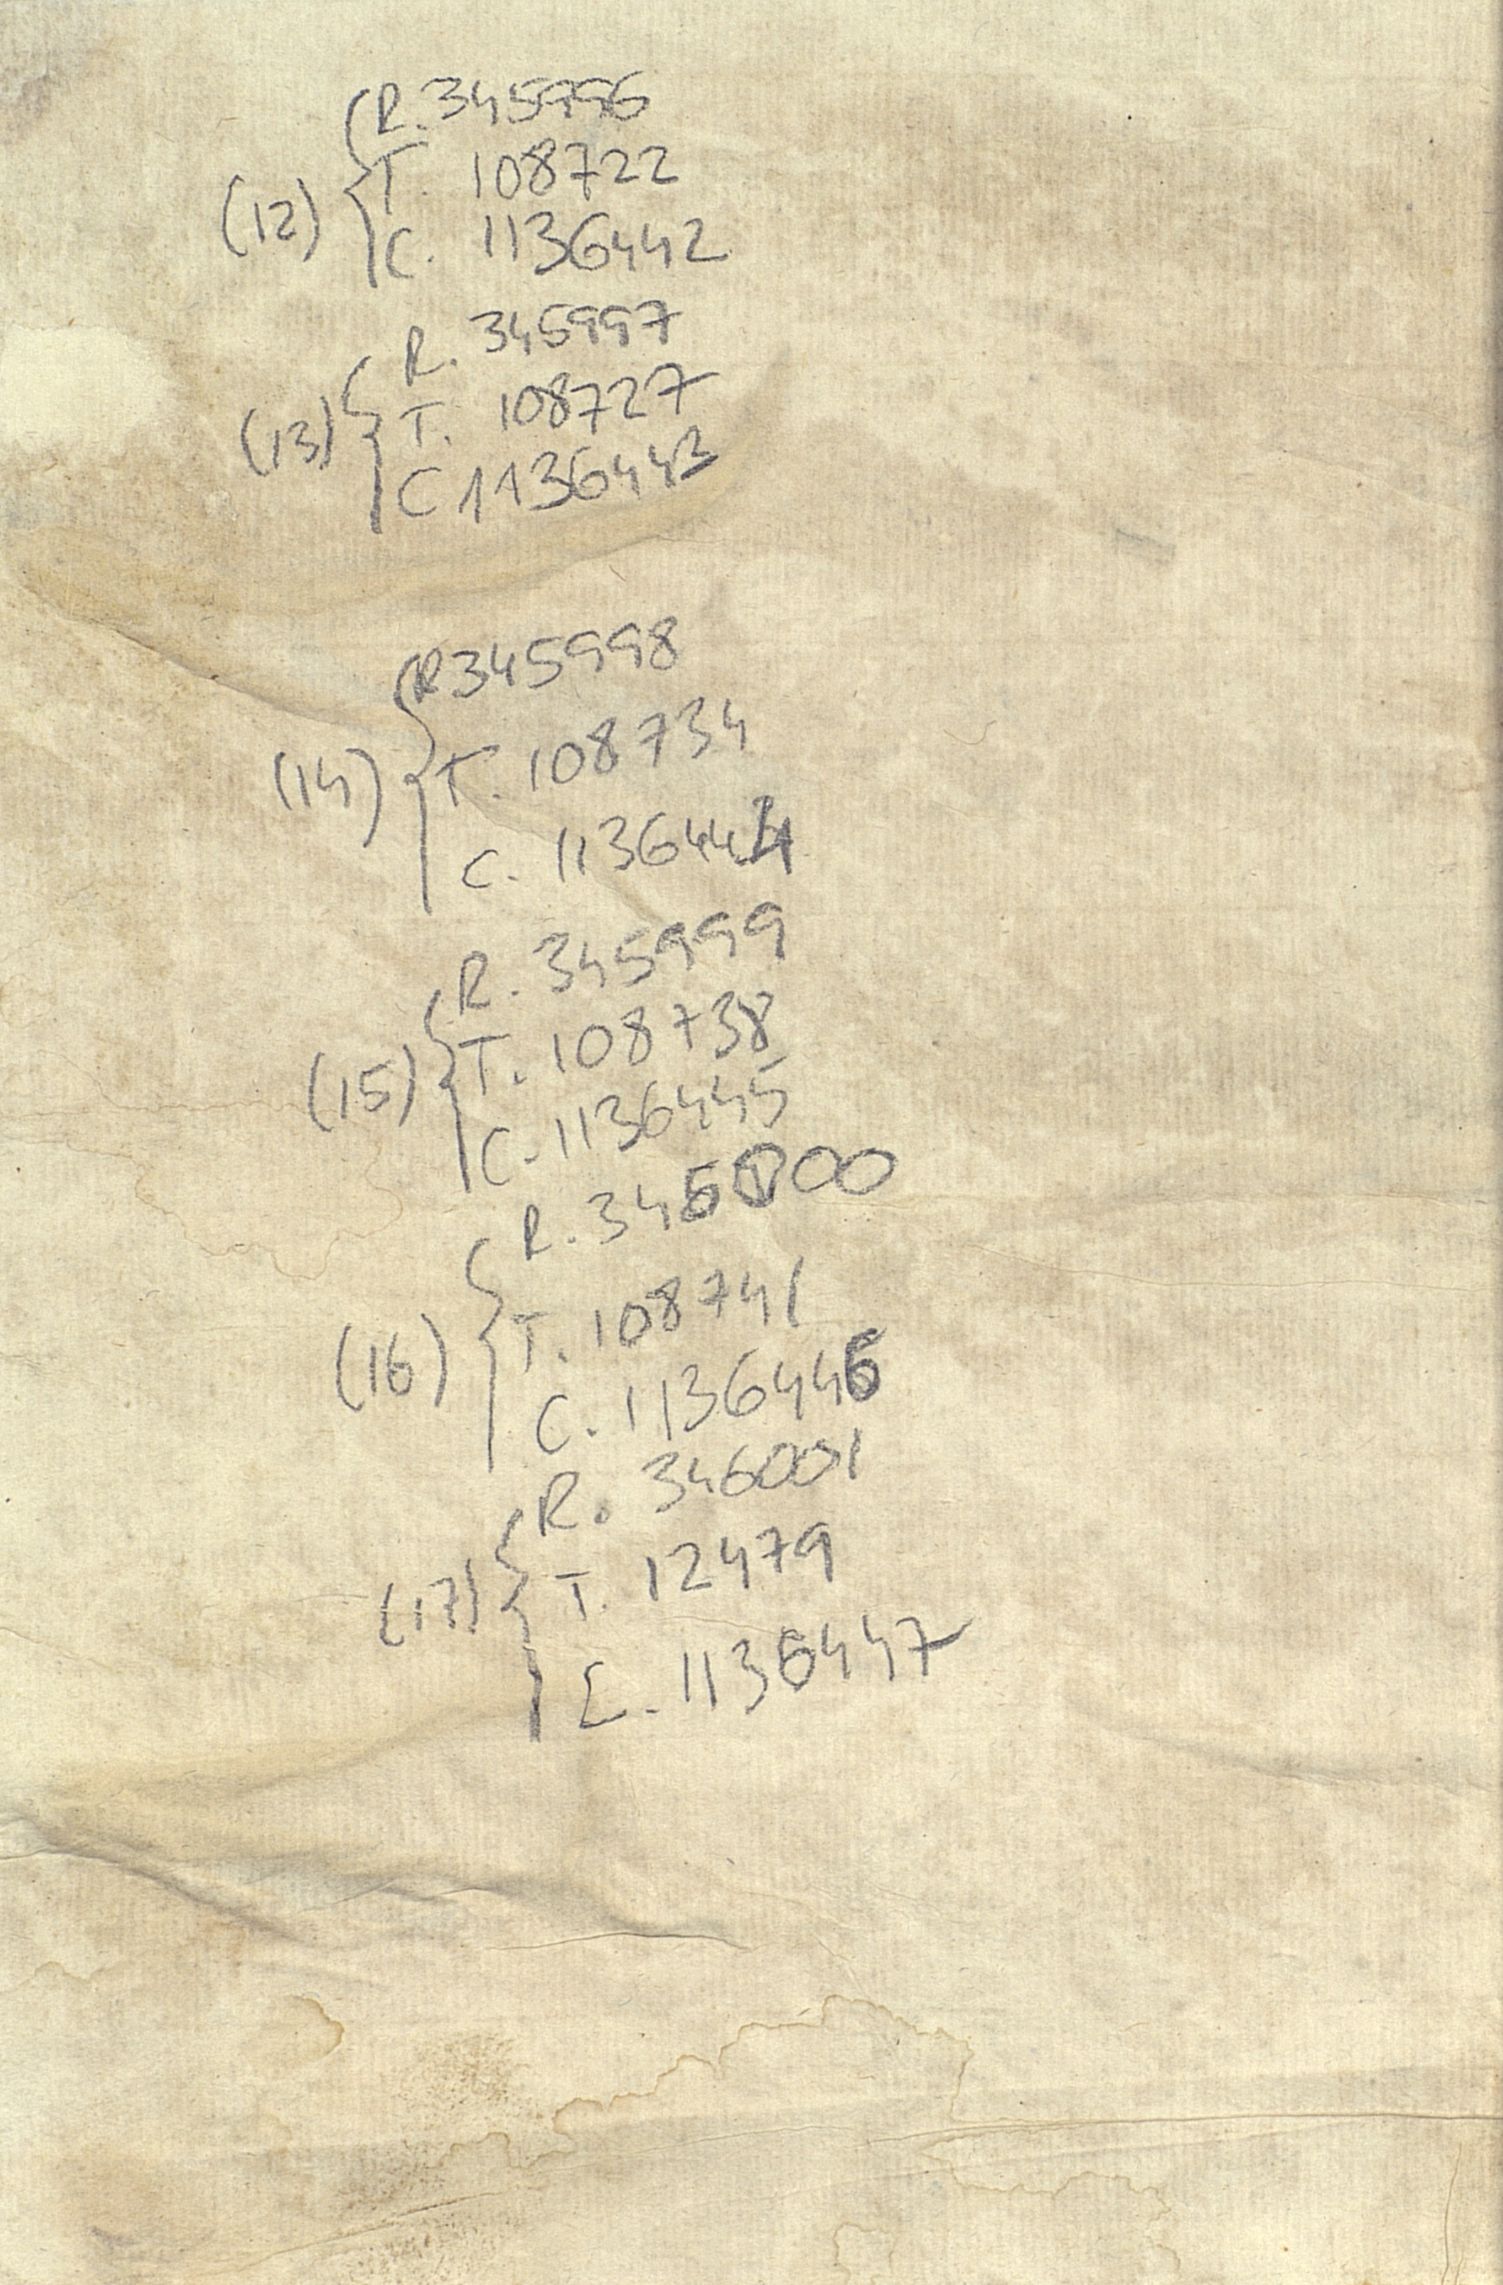 R. 345996
T. 108722
(12) C. 1136442
R. 345997
T. 108727
(13) C 1136443
R 345998
(14) T. 108734
C. 1136444
R. 345999
(15) T. 108738
C. 1136445
R. 346000
T. 108741
(16) C. 1136446
R. 346001
(17) T. 12479
C. 1136447